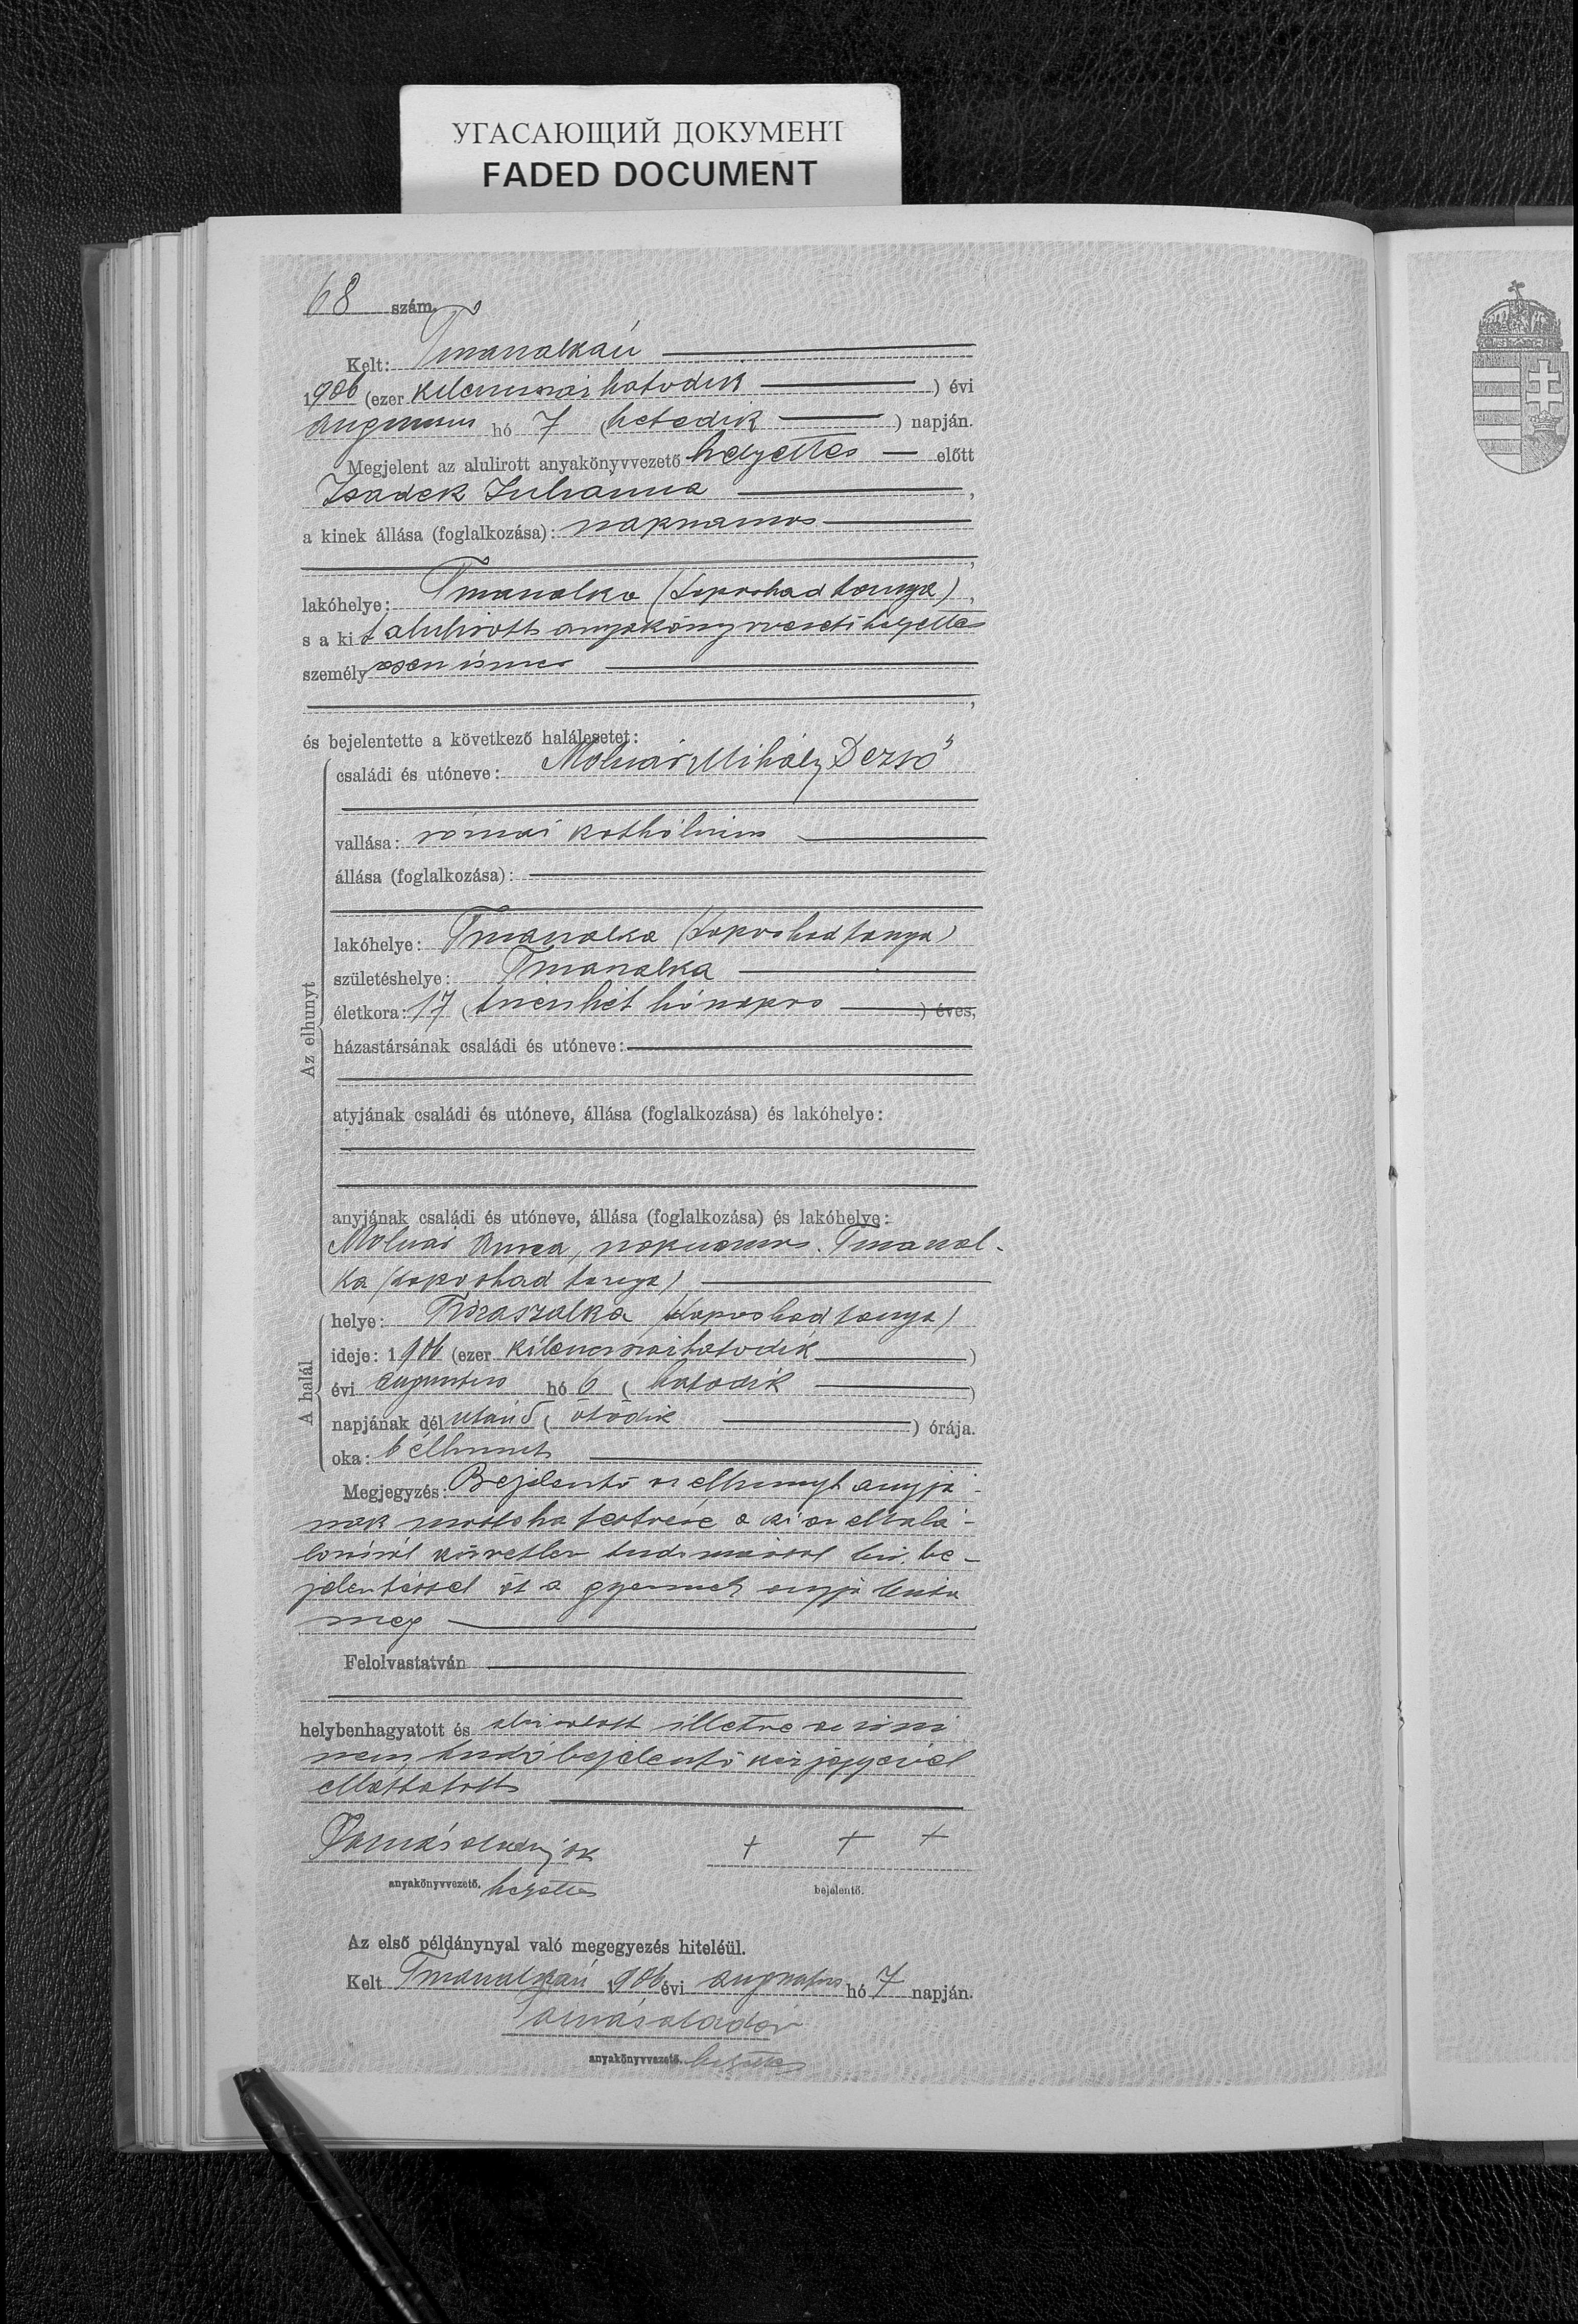 УГАСАЮЩИЙ ДОКУМЕНТ
FADED DOCUMENT
68 szám.
Kelt: Tiszaszalkán
1906 (ezer kilenczszázhatodik) évi
augusztus hó 7 (hetedik) napján.
Megjelent az alulirott anyakönyvvezető helyettes előtt
Julianna,
a kinek állása (foglalkozása): napszámos
lakóhelye: Tiszaszalka (Koposhad tanya),
s a kit alulirott anyakönyvvezető helyettes
személyesen ismer
és bejelentette a következő halálesetet:
Az elhunyt
családi és utóneve: Molnár Mihály Dezső
vallása: római katholikus
állása (foglalkozása):
lakóhelye: Tiszaszalka (Koposhad tanya)
születéshelye: Tiszaszalka
életkora: 17 (tizenhét hónapos) éves,
házastársának családi és utóneve:
atyjának családi és utóneve, állása (foglalkozása) és lakóhelye:
anyjának családi és utóneve, állása (foglalkozása) és lakóhelye:
Molnár, napszámos. Tiszaszal-
ka (Koposhad tanya)
A halál
helye: Tiszaszalka (Koposhad tanya)
ideje: 1906 (ezer kilenczszázhatodik)
évi augusztus hó 6 (hatodik)
napjának dél után 5 (ötödik) órája.
oka: bélhurut
Megjegyzés: Bejelentő az elhunyt anyjá-
nak mostoha testvére a ki az elhalá-
lozásról közvetlen tudomással bír, be-
jelentéssel őt a gyermek anyja bízta
meg
Felolvastatván
helybenhagyatott és aláiratott illetve az irni
nem tudó bejelentő kézjegyével
elláttatott
Tamás
anyakönyvvezető. helyettes
+ + +
bejelentő.
Az első példánynyal való megegyezés hiteléül.
Kelt Tiszaszalkán 1906 évi augusztus hó 7 napján.
Tamás
anyakönyvvezető. helyettes